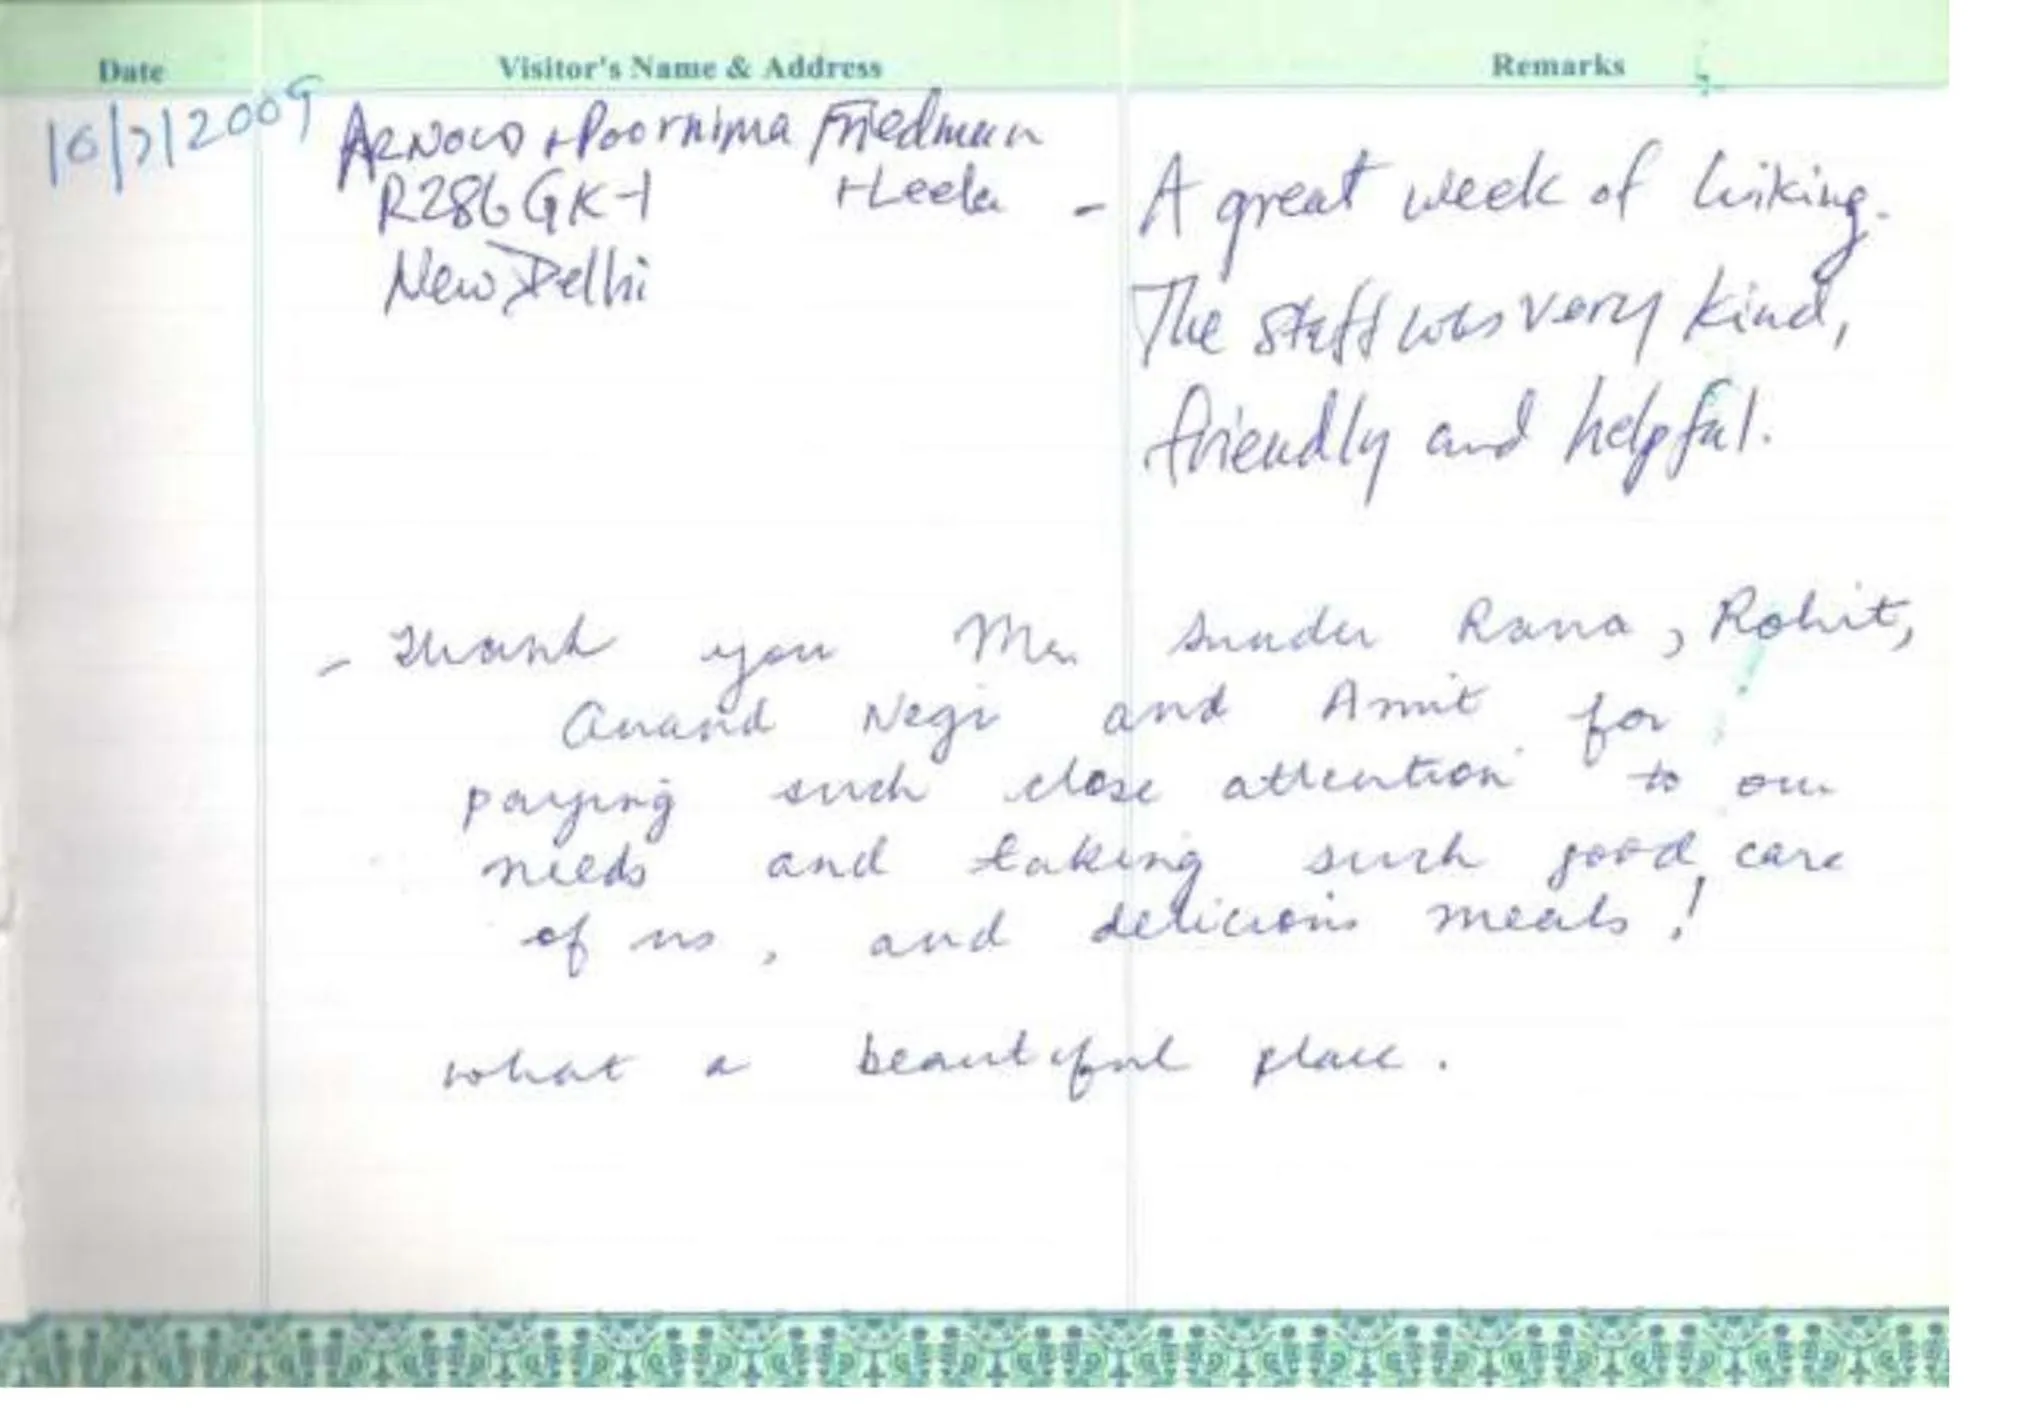 Date Visitor's Name & Address Remarks
16/7/2009 Arnold + Poornima Friedman
R286 GK-1 + Leela
New Delhi
- A great week of hiking.
The staff was very kind,
friendly and helpful.
- Thank you Mr. Sunder Rana, Rohit,
Anand Negi and Amit for
paying such close attention to our
needs and taking such good care
of us, and delicious meals!
what a beautiful place.